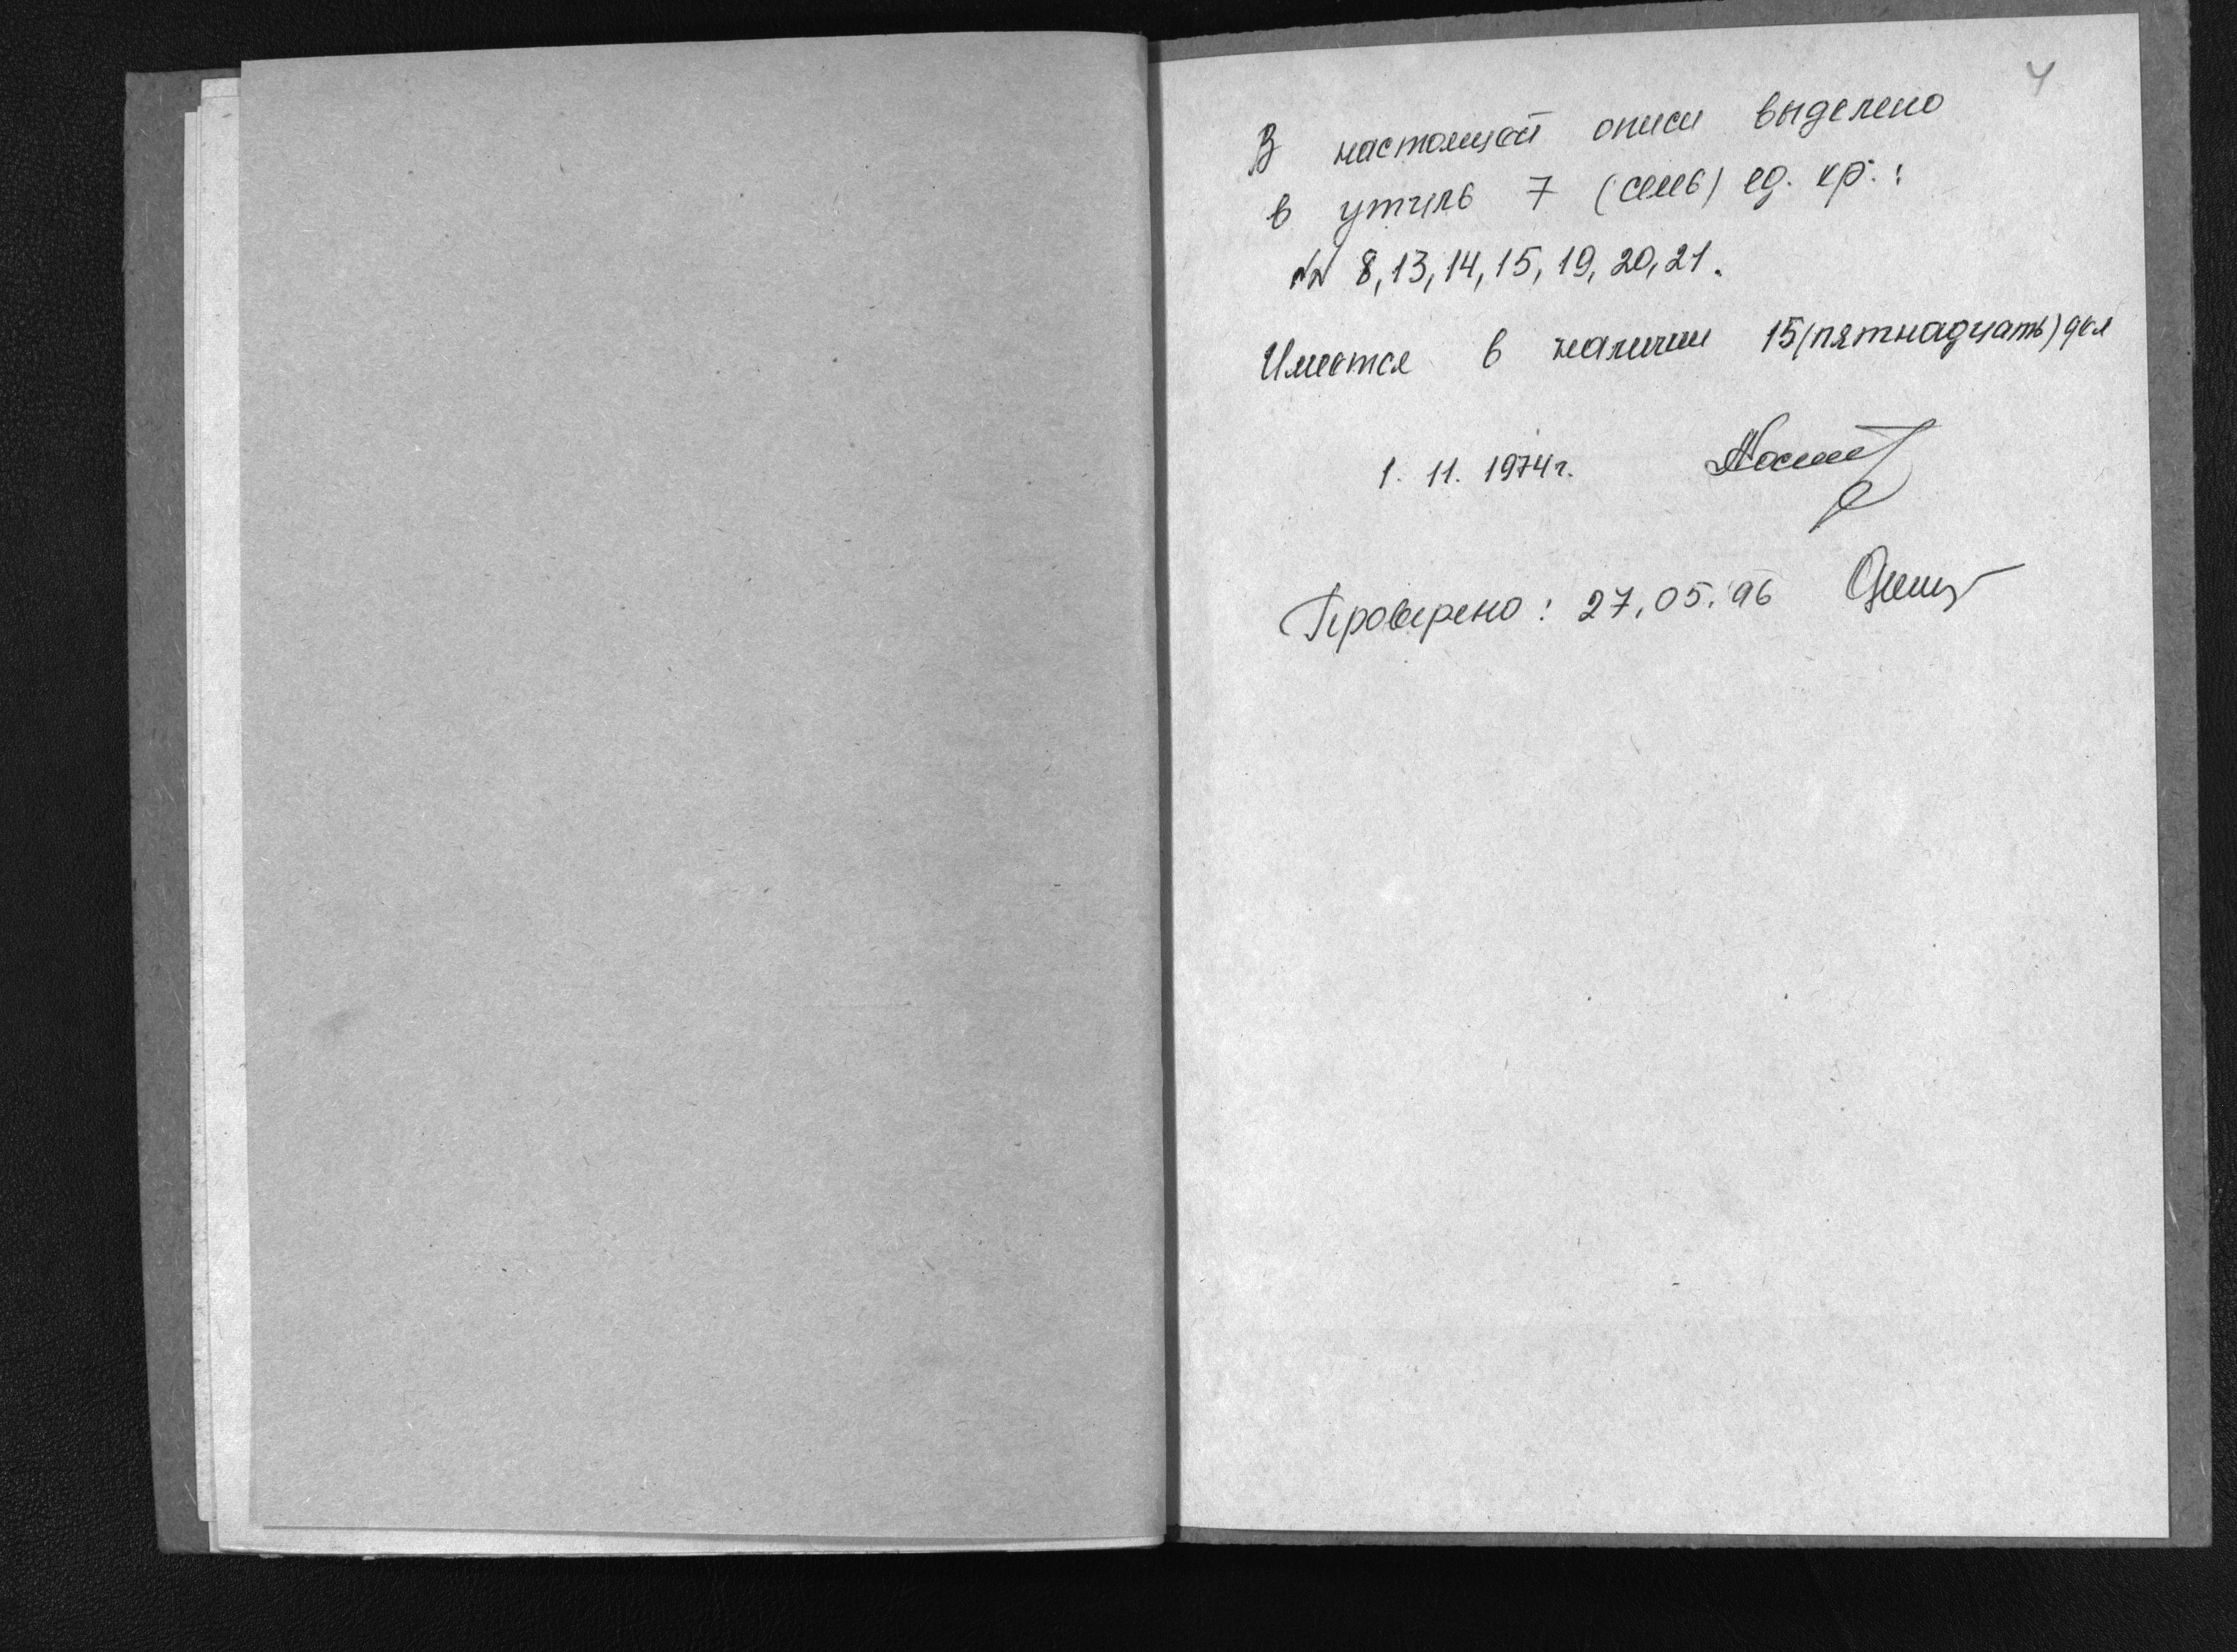 4
В настоящей описи выделено
в утиль 7 (семь) ед. хр.:
NN 8, 13, 14, 15, 19, 20, 21.
Имеется в наличии 15 (пятнадцать) дел
1. 11. 1974 г.
Проверено: 27.05.96